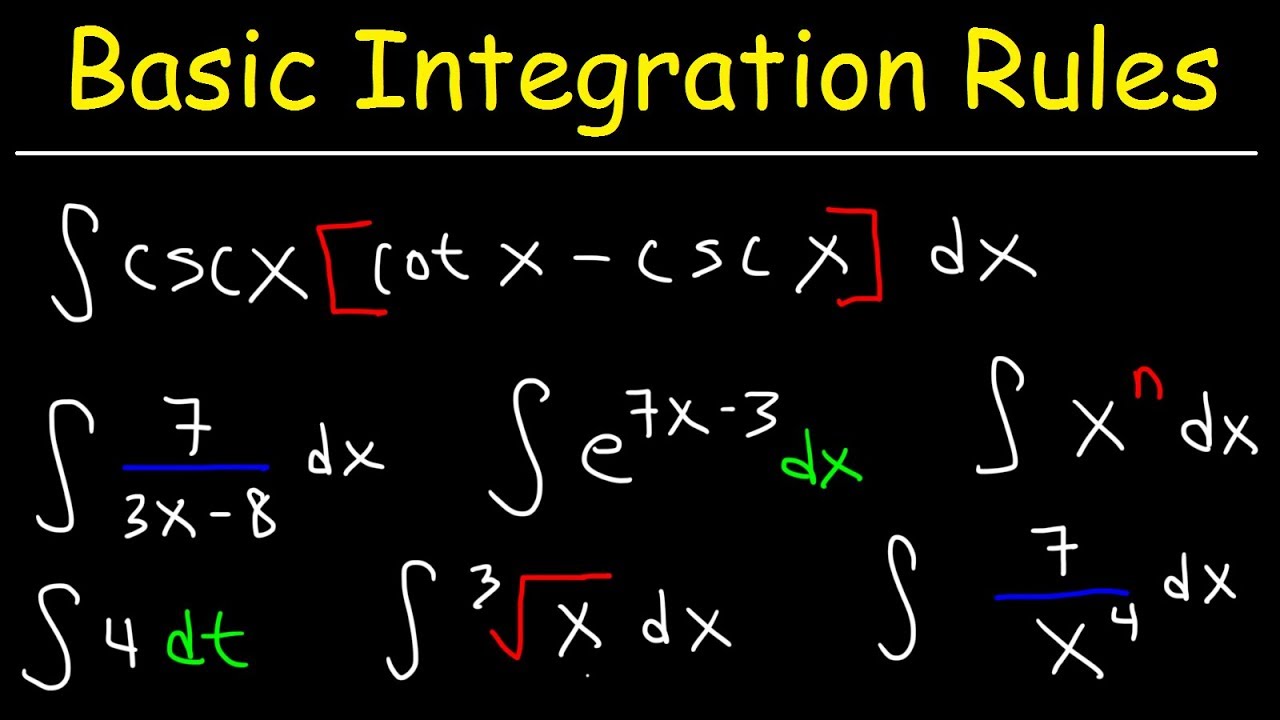 Basic Integration Rules
∫ cscx [cot x - csc x] dx
∫ 7/(3x-8) dx ∫ e^(7x-3) dx ∫ x^n dx
∫ 4 dt ∫ ³√x dx ∫ 7/x^4 dx